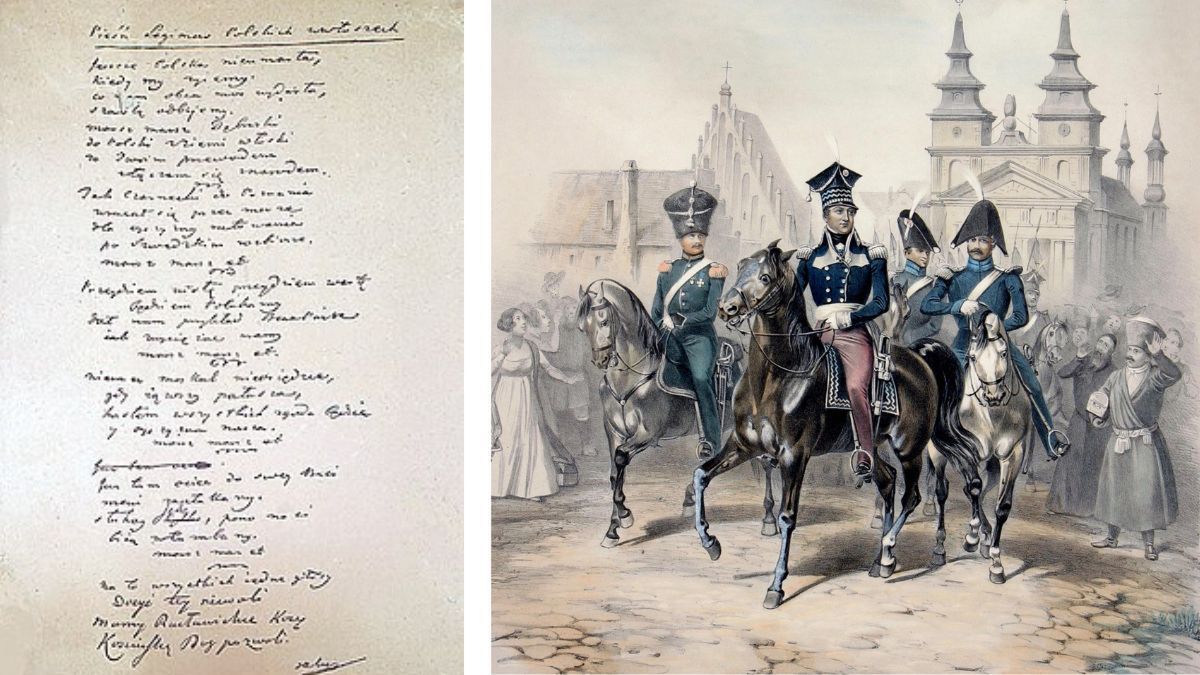 Pieśń Legionów Polskich we włoszech
Jeszcze Polska nie umarła,
kiedy my żyjemy.
co nam obca moc wydarła,
szablą odbijemy.
marsz marsz Dąbrowski
do Polski z ziemi włoski
za Twoim przewodem
złączem się z narodem.
Jak Czarnecki do Poznania
wracał się przez morze
dla ojczyzny ratowania
po szwedzkim rozbiorze.
marsz marsz et
Przejdziem wisłę przejdziem wartę
będziem Polakamy
dał nam przykład Bonaparte
jak zwyciężać mamy
marsz marsz et
niemiec moskal nie osiędzie,
gdy jąwszy pałasza,
hasłem wszystkich zgoda będzie
y ojczyzna nasza.
marsz marsz et
Już tam ociec do swej Basi
mówi zapłakany.
słuchaj, pono nasi
biją w tarabany.
marsz marsz et
na to wszystkich jedne głosy
Dosyć tej niewoli
mamy Racławickie Kosy
Kosciuszkę Bóg pozwoli.